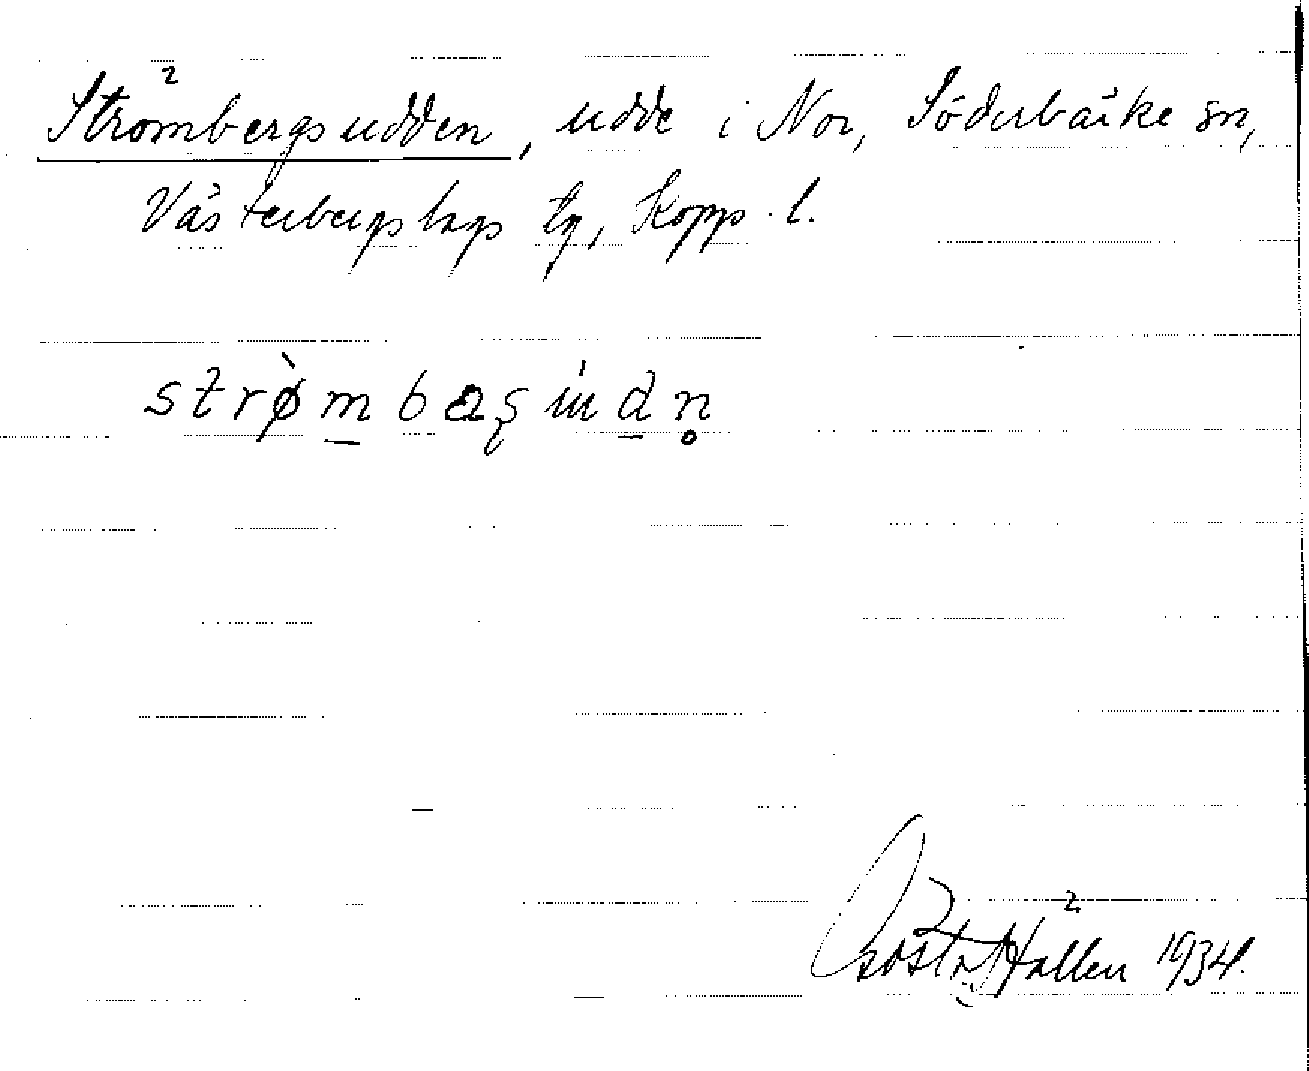 Strömbergsudden, udde i Nor, Söderbärke sn,
Västerbergslags tg, Kopps. l.
strø̀m baʂ u̍dn̥
Gösta Hallén 1934.